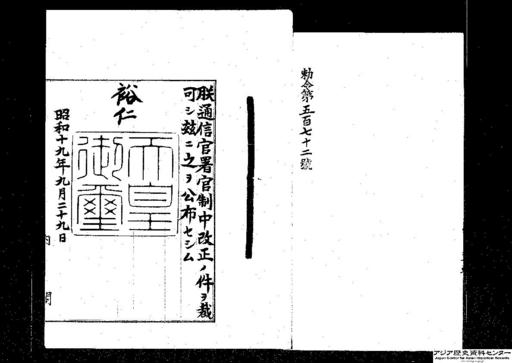 勅令第五百七十二號
朕通信官署官制中改正ノ件ヲ裁
可シ茲ニ之ヲ公布セシム
裕仁
天皇
御璽
昭和十九年九月二十九日
内閣
アジア歴史資料センター
Japan Center for Asian Historical Records